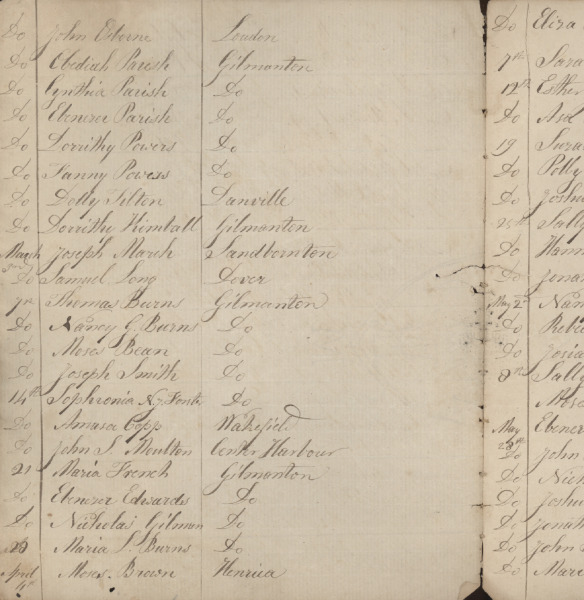 Do John Osborne Loudon
Do Obediah Parish Gilmanton
Do Cynthia Parish Do
Do Ebenezer Parish Do
Do Dorrithy Powers Do
Do Fanny Powers Do
Do Dolly Tilton Danville
Do Dorrithy Kimball Gilmanton
March Joseph Marsh Sandbornton
Do Samuel Long Dover
7th Thomas Burns Gilmanton
Do Nancy G. Burns Do
Do Moses Bean Do
Do Joseph Smith Do
14th Sophronia N. Do
Do Amasa Copp Wakefield
Do John S. Moulton Center Harbour
21 Maria French Gilmanton
Do Ebenezer Edwards Do
Do Nicholas Gilman Do
28 Maria S. Burns Do
April Moses Brown Henrica
Do Eliza
7th Sara
12th Esther
Do Asa
19 Sura
Do Polly
Do Joshu
25th Sally
Do Hann
Do Jona
May 2d Nan
Do Rebe
Do Josia
9th Sally
Mose
May Ebenez
Do John
Do Nich
Do Joshu
Do Jonath
Do John
Do Mari